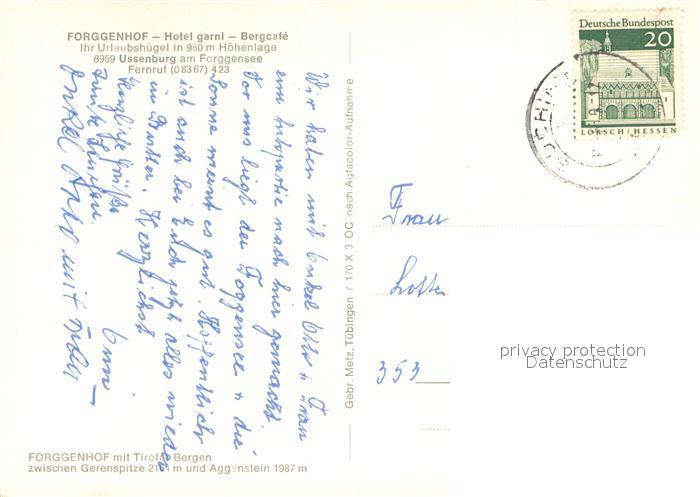 FORGGENHOF – Hotel garni – Bergcafé
Ihr Urlaubshügel in 960 m Höhenlage
8959 Ussenburg am Forggensee
Fernruf (08367) 423
Wir haben mit Onkel Otto + Frau
eine Autopartie nach hier gemacht.
Vor uns liegt der Foggensee + die
Sonne meint es gut. Hoffentlich
ist auch bei Euch jetzt alles wieder
in Butter. Herzlichst
Herzliche Grüße
Onkel Otto mit
FORGGENHOF mit Tiroler Bergen
zwischen Gerenspitze 2164 m und Aggenstein 1987 m
Gebr. Metz, Tübingen / 170 X 3 OC nach Agfacolor-Aufnahme
Deutsche Bundespost
20
LORSCH/HESSEN
Frau
Lotte
353
privacy protection
Datenschutz